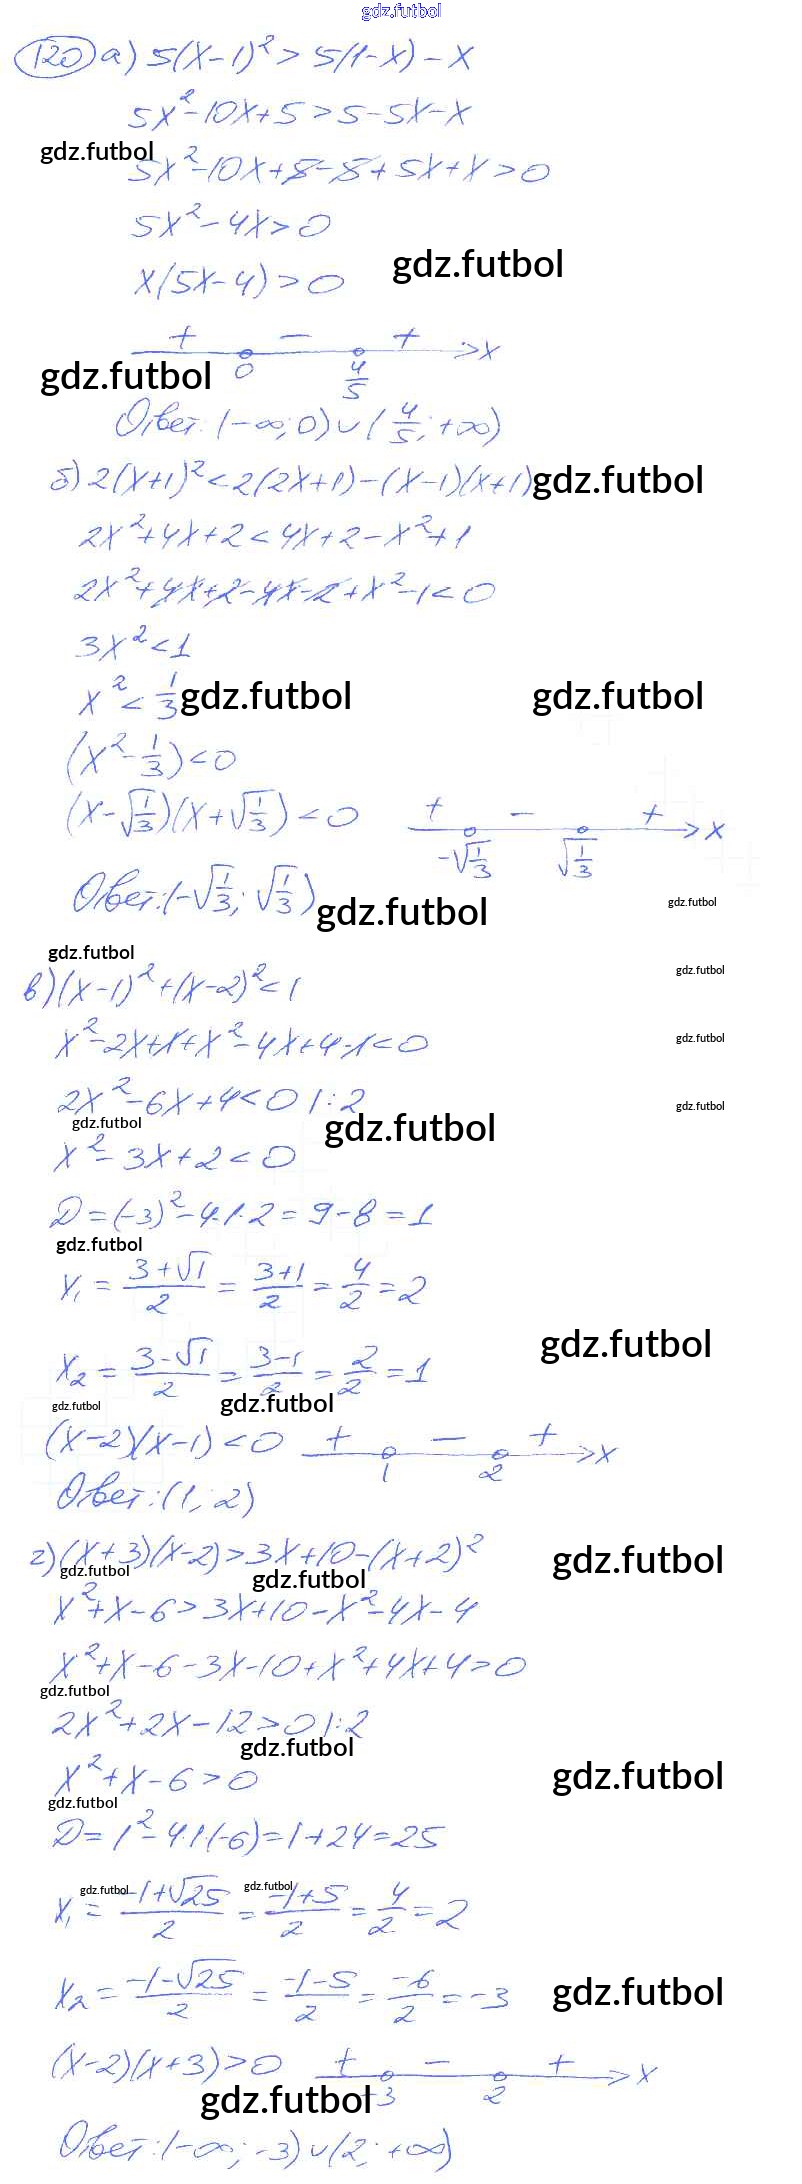 gdz.futbol
120 а) 5(x-1)² > 5(1-x) - x
5x² - 10x + 5 > 5 - 5x - x
gdz.futbol
5x² - 10x + 5 - 5 + 5x + x > 0
5x² - 4x > 0
gdz.futbol
x(5x - 4) > 0
+ - + x
gdz.futbol
0 4/5
Ответ: (-∞; 0) ∪ (4/5; +∞)
б) 2(x+1)² < 2(2x+1) - (x-1)(x+1) gdz.futbol
2x² + 4x + 2 < 4x + 2 - x² + 1
2x² + 4x + 2 - 4x - 2 + x² - 1 < 0
3x² < 1
x² < 1/3 gdz.futbol gdz.futbol
(x² - 1/3) < 0
(x - √1/3)(x + √1/3) < 0 + - + x
-√1/3 √1/3
Ответ: (-√1/3; √1/3) gdz.futbol gdz.futbol
gdz.futbol
в) (x-1)² + (x-2)² < 1 gdz.futbol
x² - 2x + 1 + x² - 4x + 4 - 1 < 0 gdz.futbol
2x² - 6x + 4 < 0 |:2 gdz.futbol
gdz.futbol gdz.futbol
x² - 3x + 2 < 0
D = (-3)² - 4·1·2 = 9 - 8 = 1
gdz.futbol
x₁ = (3+√1)/2 = (3+1)/2 = 4/2 = 2
gdz.futbol
x₂ = (3-√1)/2 = (3-1)/2 = 2/2 = 1
gdz.futbol gdz.futbol
(x-2)(x-1) < 0 + - + x
1 2
Ответ: (1; 2)
г) (x+3)(x-2) > 3x + 10 - (x+2)² gdz.futbol
gdz.futbol gdz.futbol
x² + x - 6 > 3x + 10 - x² - 4x - 4
x² + x - 6 - 3x - 10 + x² + 4x + 4 > 0
gdz.futbol
2x² + 2x - 12 > 0 |:2
gdz.futbol
x² + x - 6 > 0 gdz.futbol
gdz.futbol
D = 1² - 4·1·(-6) = 1 + 24 = 25
gdz.futbol gdz.futbol
x₁ = (-1+√25)/2 = (-1+5)/2 = 4/2 = 2
x₂ = (-1-√25)/2 = (-1-5)/2 = -6/2 = -3 gdz.futbol
(x-2)(x+3) > 0 + - + x
gdz.futbol -3 2
Ответ: (-∞; -3) ∪ (2; +∞)